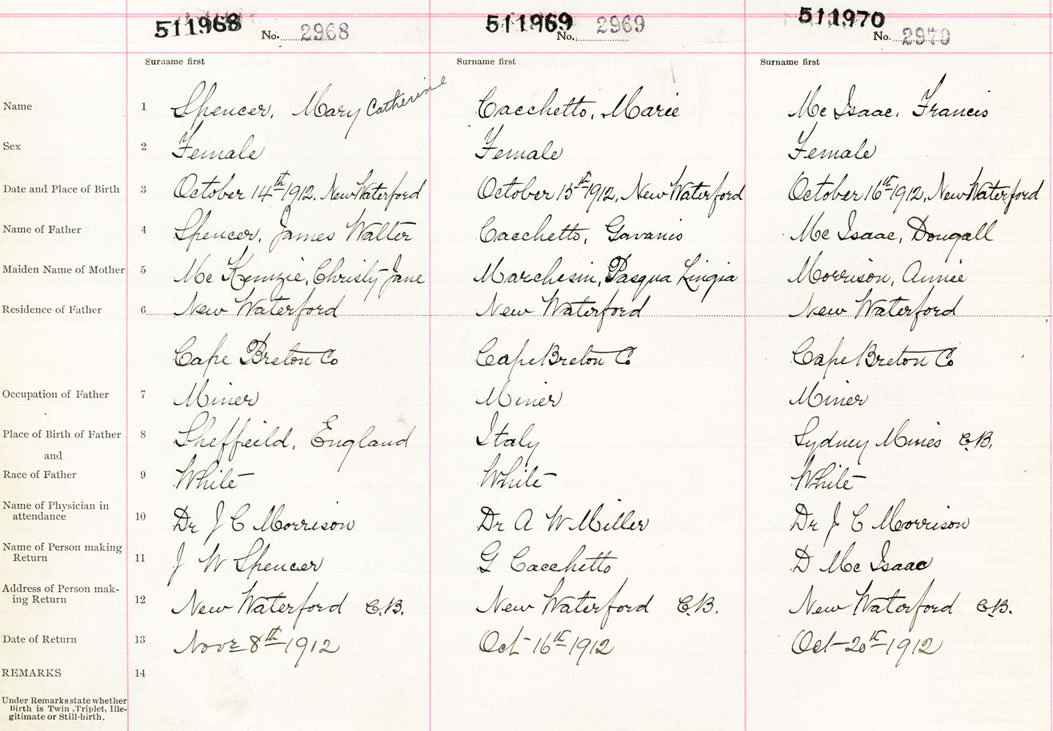 511968 No. 2968 511969 No. 2969 511970 No. 2970
Surname first Surname first Surname first
Name 1 Spencer, Mary Catherine Cacchetto, Marie Mc Isaac, Francis
Sex 2 Female Female Female
Date and Place of Birth 3 October 14th 1912, New Waterford October 15th 1912, New Waterford October 16th 1912, New Waterford
Name of Father 4 Spencer, James Walter Cacchetto, Gavanio Mc Isaac, Dougall
Maiden Name of Mother 5 Mc Kenzie, Christy Jane Marchesin, Pasqua Morrison, Annie
Residence of Father 6 New Waterford New Waterford New Waterford
Cape Breton Co Cape Breton Co Cape Breton Co
Occupation of Father 7 Miner Miner Miner
Place of Birth of Father 8 Sheffeild, England Italy Sydney Mines C.B.
and
Race of Father 9 White White White
Name of Physician in
attendance 10 Dr J C Morrison Dr A W Miller Dr J C Morrison
Name of Person making
Return 11 J W Spencer G Cacchetto D Mc Isaac
Address of Person mak-
ing Return 12 New Waterford C.B. New Waterford C.B. New Waterford C.B.
Date of Return 13 Nove 8th 1912 Oct 16th 1912 Oct 20th 1912
REMARKS 14
Under Remarks state whether
Birth is Twin, Triplet, Ille-
gitimate or Still-birth.